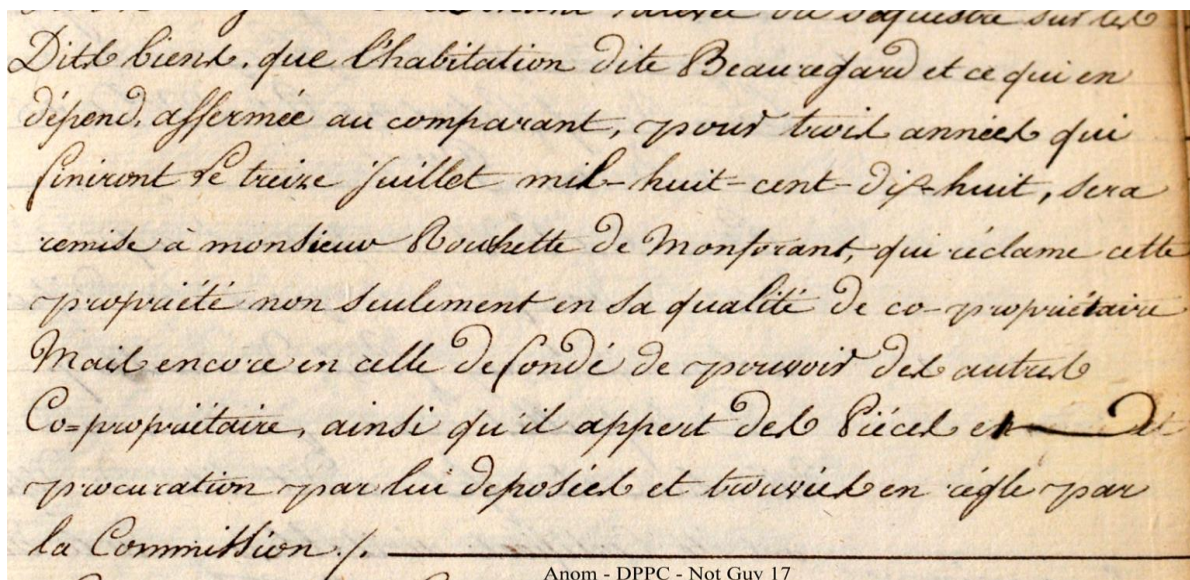 séquestre sur les
Dits biens, que l'habitation dite Beauregard et ce qui en
dépend, affermée au comparant, pour trois années qui
finiront le treize juillet mil-huit-cent-dix-huit, sera
remise à monsieur Rouchette de Monforant, qui réclame cette
propriété non seulement en sa qualité de co-propriétaire
Mais encore en celle de fondé de pouvoir des autres
Co=propriétaire, ainsi qu'il appert des Piéces et des
procuration par lui deposées et trouvées en régle par
la Commission ./.
Anom - DPPC - Not Guy 17